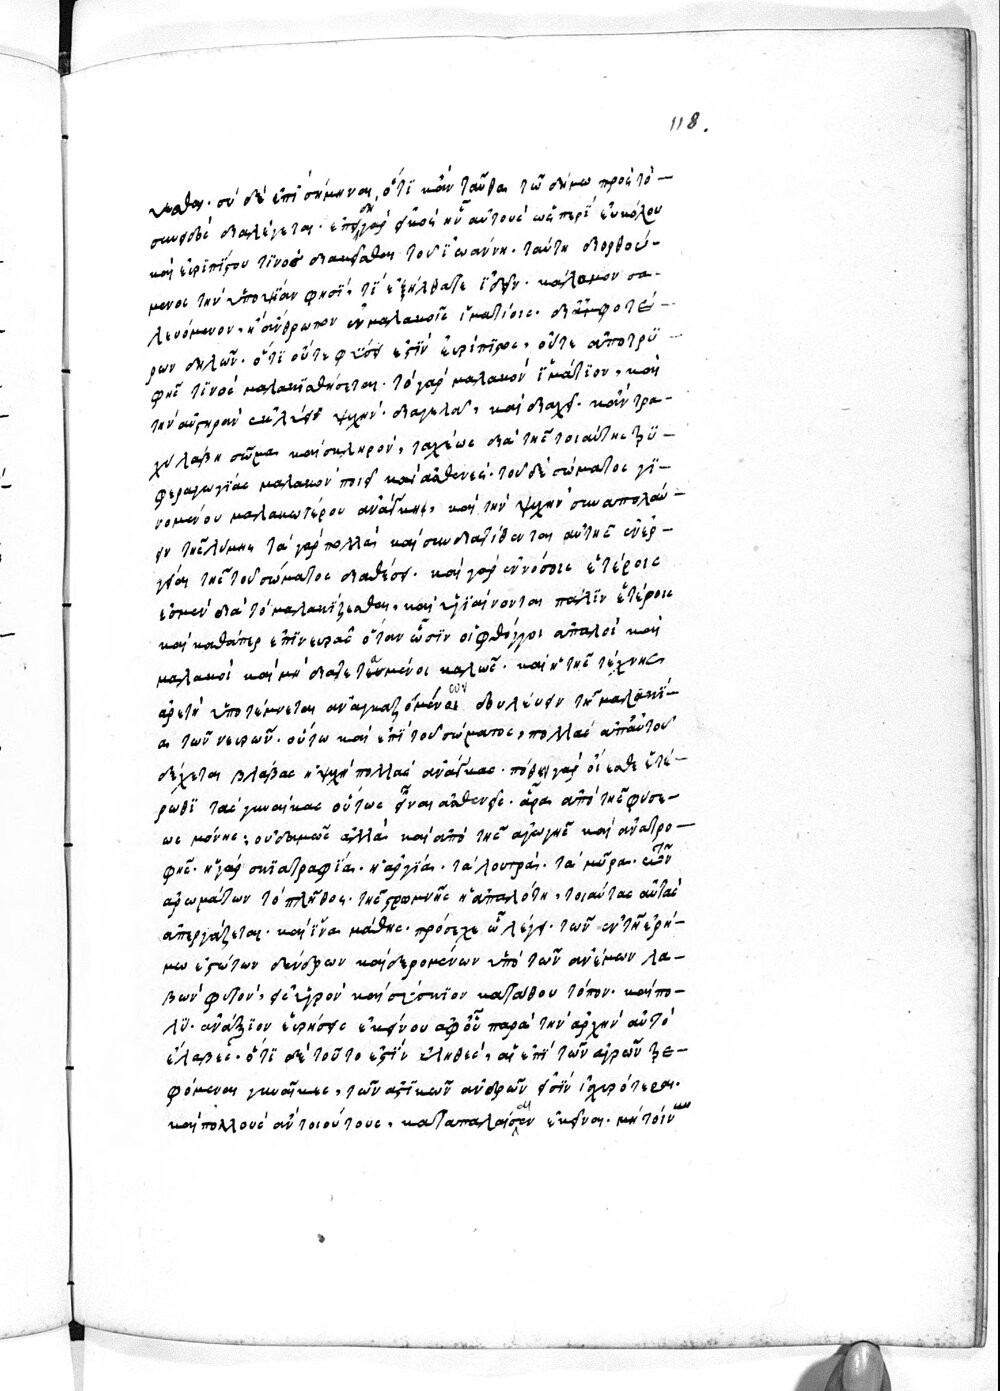 118.
σὺ δὲ ἐπισήμηναι, ὅτι κἂν ταῦθα τῷ δήμῳ πρὸς τὸ
συμφέρον διαλέγεται. ἐπειδὴ γὰρ εἰκὸς ἦν αὐτοὺς ὡς περὶ εὐκόλου
καὶ εὐριπίστου τινὸς διακεῖσθαι τοῦ ἰωάννη. ταύτη διορθού-
μενος τὴν ὑποψίαν φησὶ, τί ἐξήλθατε ἰδεῖν. κάλαμον σα-
λευόμενον, ἢ ἄνθρωπον ἐν μαλακοῖς ἱματίοις. δι ἀμφοτέ-
ρων δηλῶν. ὅτι οὔτε φύσει ἐστὶν εὐρίπιστος, οὔτε ἀπὸ τρυ-
φῆς τινὸς μαλακισθήσεται. τὸ γὰρ μαλακὸν ἱμάτιον, καὶ
τὴν αὐστηρὰν ἐκλύει ψυχήν. διαγελᾶ, καὶ διαχεῖ. κἂν τρα-
χὺ λάβη σῶμα καὶ σκληρὸν, ταχέως διὰ τῆς τοιαύτης ξυ-
φεραγωγίας μαλακὸν ποιεῖ καὶ ἀσθενές. τοῦ δὲ σώματος γι-
νομένου μαλακωτέρου ἀνάγκη, καὶ τὴν ψυχὴν συναπολαύ-
ειν τῆς λύμης τὰ γὰρ πολλὰ καὶ συνδιατίθενται αὐτῆς ἐνέρ-
γειαι τῆς τοῦ σώματος διαθέσει. καὶ γὰρ ἐν νόσοις ἑτέροις
ἐσμὲν διὰ τὸ μαλακίζεσθαι, καὶ ὑγιαίνονται πάλιν ἑτέροις
καὶ καθάπερ ἐπὶ νευρᾶς ὅταν ὦσιν οἱ φθόγγοι ἁπαλοὶ καὶ
μαλακοὶ καὶ μὴ διατεταμένοι καλῶς. καὶ ἡ τῆς τέχνης
ἀρετὴ ὑποτέμνεται ἀναγκαζομένη δουλεύειν τῆ μαλακί-
α τῶν νευρῶν. οὕτω καὶ ἐπὶ τοῦ σώματος, πολλὰς ἀπ αὐτοῦ
δέχεται βλάβας ἡ ψυχὴ πολλὰς ἀνάγκας. πόθεν γὰρ οἴεσθε ἑτέ-
ρωθι τὰς γυναίκας οὕτως εἶναι ἀσθενεῖς. ἆρα ἀπὸ τῆς φύσε-
ως μόνης; οὐδαμῶς ἀλλὰ καὶ ἀπὸ τῆς ἀγωγῆς καὶ ἀνατρο-
φῆς. ἡ γὰρ σκιατραφία. ἡ ἀργία. τὰ λουτρά. τὰ μῦρα.
ἀρωμάτων τὸ πλῆθος. τῆς στρωμνῆς ἡ ἁπαλότη, τοιαύτας αὐτὰς
ἀπεργάζεται. καὶ ἵνα μάθης. πρόσεχε ᾧ λέγω. τῶν ἐν τῆ ἐρή-
μω ἑστώτων δένδρων καὶ δερομένων ὑπὸ τῶν ἀνέμων λα-
βὼν φυτὸν, εἰς ὑγρὸν καὶ σύσκιον κατάθου τόπον. καὶ πο-
λὺ ἀνάξιον εὑρήσεις ἐκείνου ἀφ οὗ παρὰ τὴν ἀρχὴν αὐτὸ
ἔλαβες. ὅτι δὲ τοῦτο ἐστὶν ἀληθὲς, αἱ ἐπὶ τῶν ἀγρῶν τρε-
φόμεναι γυναῖκες, τῶν ἀστικῶν ἀνδρῶν εἰσὶν ἰσχυρότεραι.
καὶ πολλοὺς ἂν τοιούτους, καταπαλαίσειεν ἐκεῖναι. μὴ τοίνυν